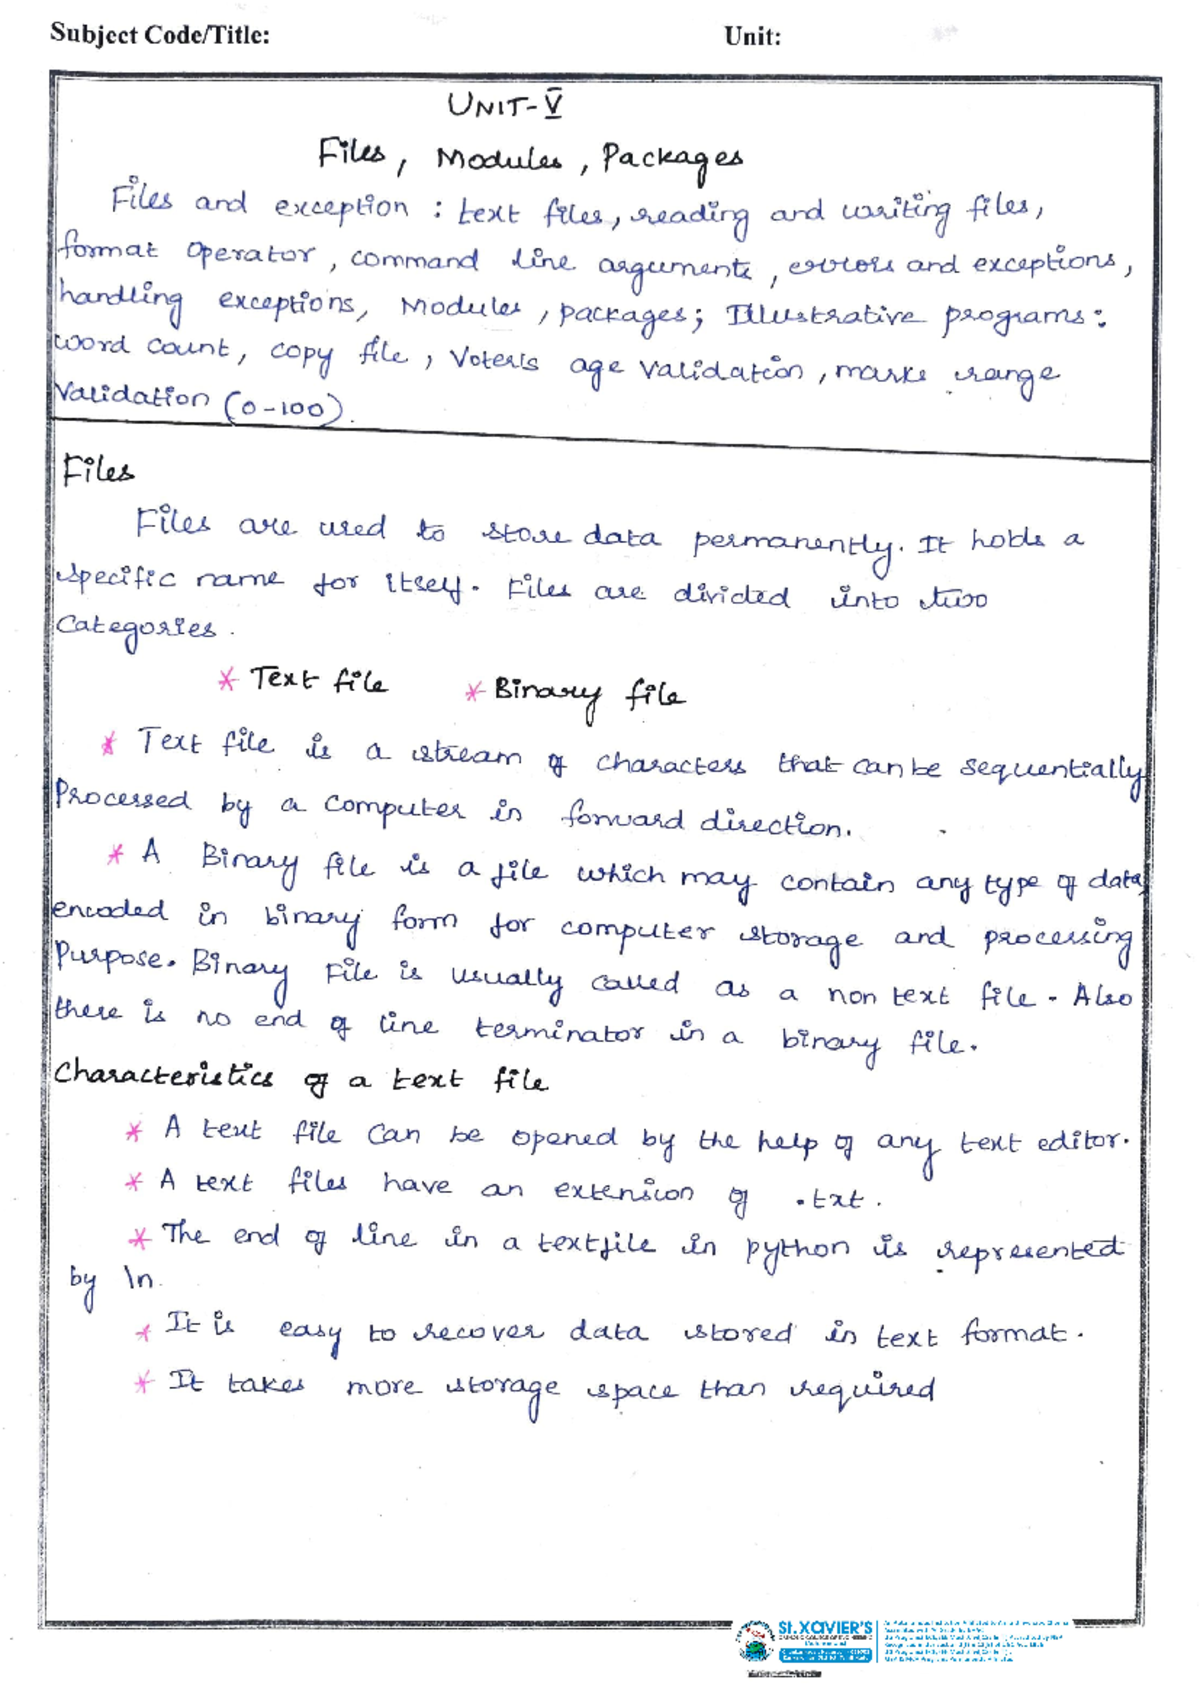 Subject Code/Title: Unit:
UNIT-V
Files, Modules, Packages
Files and exception : text files, reading and writing files,
format operator, command line arguments, errors and exceptions,
handling exceptions, Modules, packages; Illustrative programs:
word count, copy file, Voter's age validation, marks range
Validation (0-100).
Files
Files are used to store data permanently. It holds a
specific name for itself. Files are divided into two
Categories.
* Text file * Binary file
* Text file is a stream of characters that can be sequentially
Processed by a computer in forward direction.
* A Binary file is a file which may contain any type of data,
encoded in binary form for computer storage and processing
Purpose. Binary File is usually called as a non text file. Also
there is no end of line terminator in a binary file.
Characteristics of a text file
* A text file can be opened by the help of any text editor.
* A text files have an extension of .txt.
* The end of line in a textfile in python is represented
by \n.
* It is easy to recover data stored in text format.
* It takes more storage space than required
St. XAVIER'S